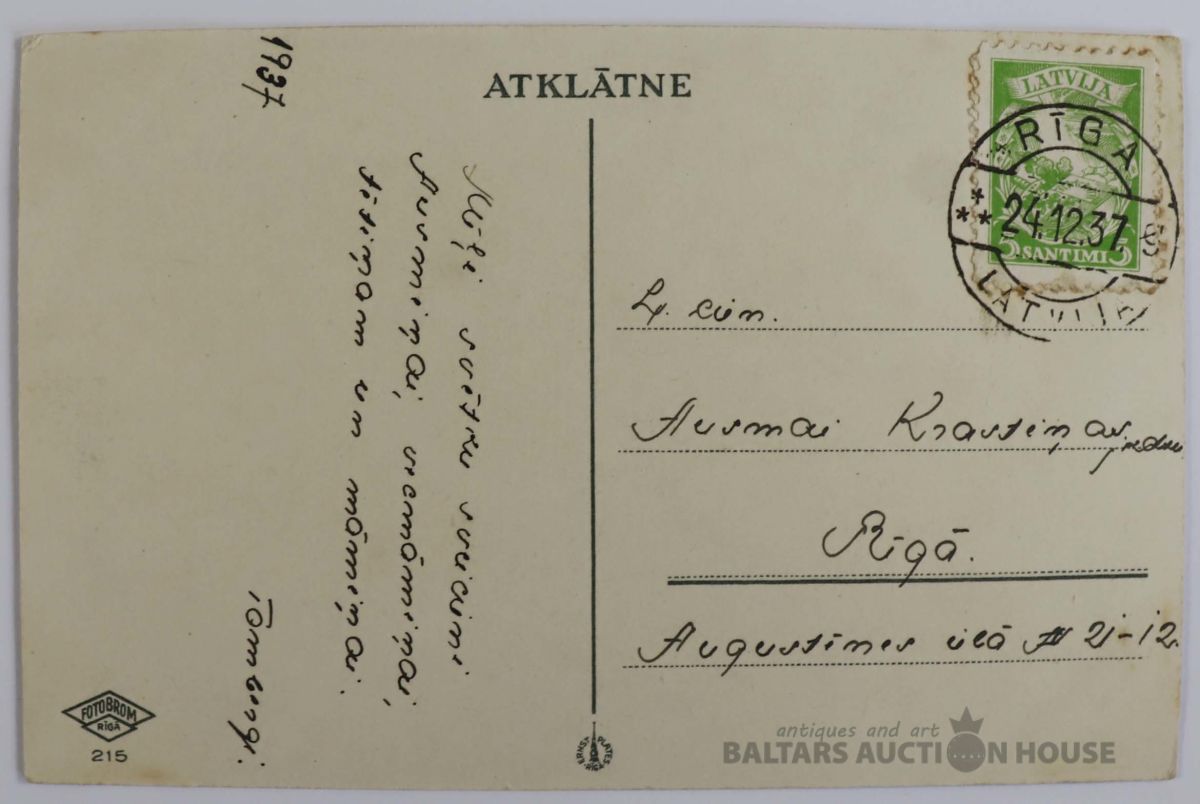 ATKLĀTNE
1937
Mīļi svētku sveicieni
Ausmiņai, vecmāmiņai,
tētiņam un māmiņai.
Tombergi.
LATVIJA
5 SANTIMI 5
RĪGA
24.12.37
LATVIJA
Ļ. cien.
Ausmai Krastiņas
Rīgā.
Augustīnes ielā # 21-12.
FOTOBROM
RĪGĀ
215
antiques and art
BALTARS AUCTION HOUSE